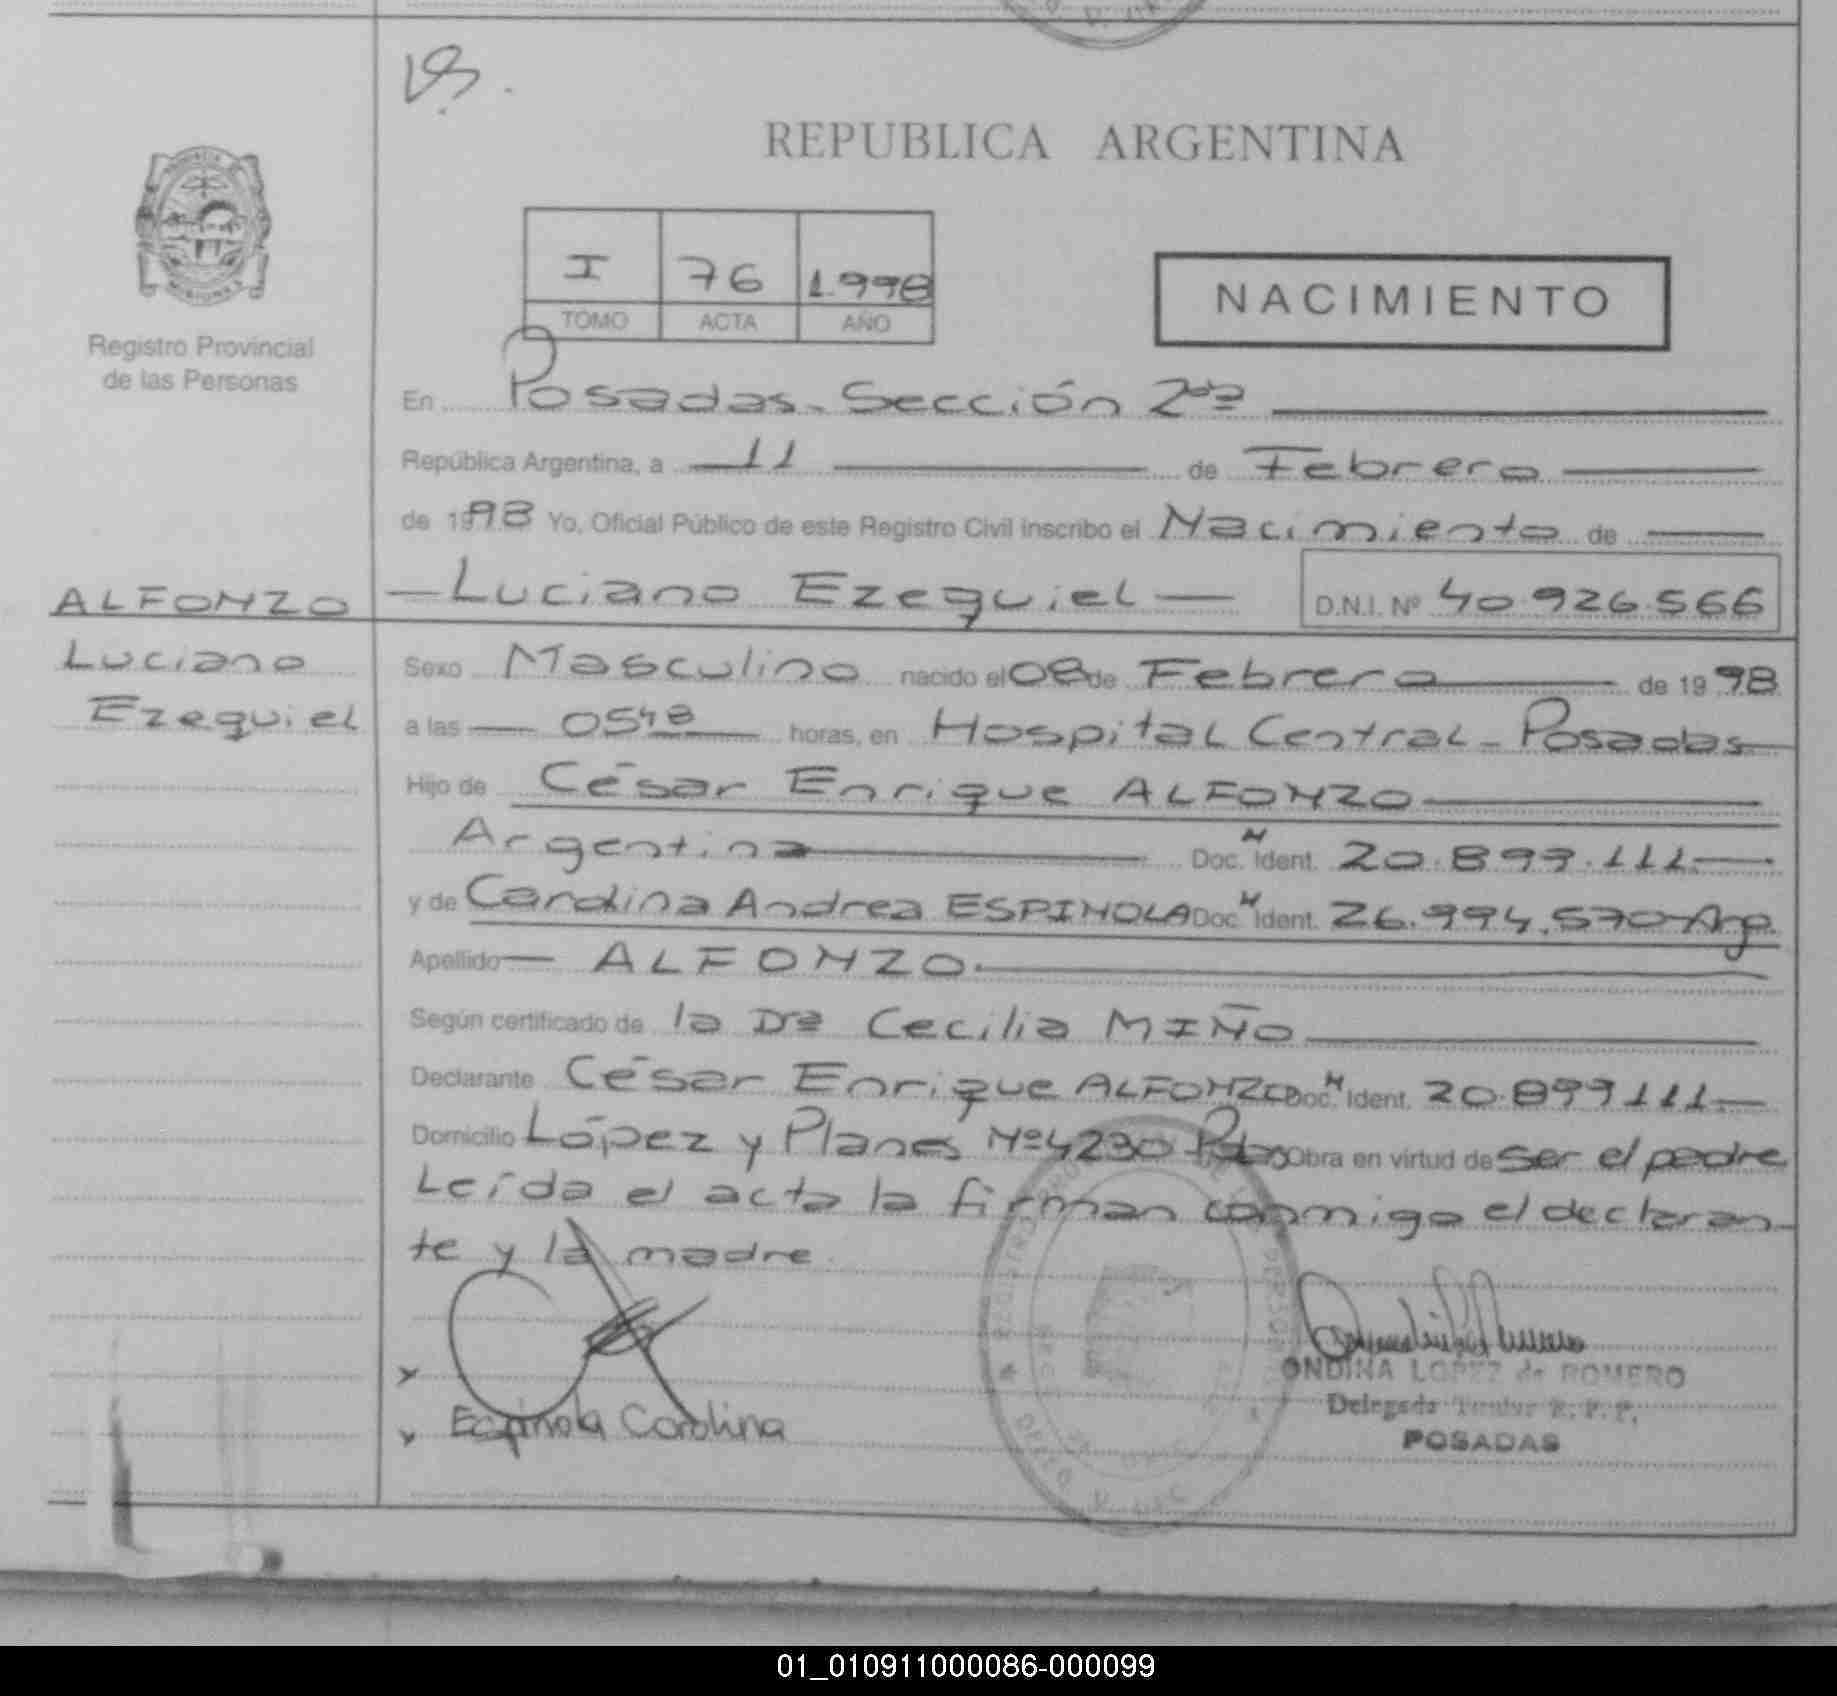 REPUBLICA ARGENTINA
I 76 1998
TOMO ACTA AÑO
NACIMIENTO
MISIONES
Registro Provincial
de las Personas
En Posadas - Sección 2da
República Argentina, a 11 de Febrero
de 1998 Yo, Oficial Público de este Registro Civil inscribo el Nacimiento de
ALFONZO
Luciano
Ezequiel
Luciano Ezequiel D.N.I. Nº 40.926.566
Sexo Masculino nacido el 08 de Febrero de 1998
a las 05 48 horas, en Hospital Central - Posadas
Hijo de César Enrique ALFONZO
Argentina Doc. N Ident. 20.899.111
y de Carolina Andrea ESPINOLA Doc. N Ident. 26.994.570 - Arg.
Apellido ALFONZO
Según certificado de la Dra Cecilia MIÑO
Declarante César Enrique ALFONZO Doc. N Ident. 20.899111
Domicilio López y Planes Nº 4230 - Pdas Obra en virtud de ser el padre
Leída el acta la firman conmigo el declaran-
te y la madre.
Espinola Carolina
ONDINA LOPEZ de ROMERO
Delegada Titular R. P. P.
POSADAS
01_010911000086-000099